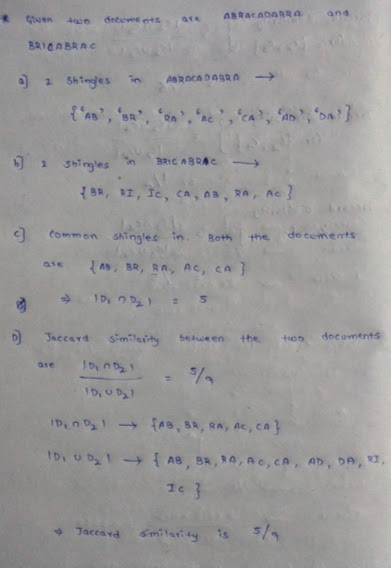 * Given two documents are ABRACADABRA and
BRICABRAC
a] 2 Shingles in ABRACADABRA →
{'AB', 'BR', 'RA', 'AC', 'CA', 'AD', 'DA'}
b] 2 Shingles in BRICABRAC →
{BR, RI, IC, CA, AB, RA, AC}
c] Common shingles in Both the documents
are {AB, BR, RA, AC, CA}
⇒ |D₁ ∩ D₂| = 5
D] Jaccard similarity between the two documents
are |D₁ ∩ D₂| / |D₁ ∪ D₂| = 5/9
|D₁ ∩ D₂| → {AB, BR, RA, AC, CA}
|D₁ ∪ D₂| → {AB, BR, RA, AC, CA, AD, DA, RI,
IC}
⇒ Jaccard similarity is 5/9